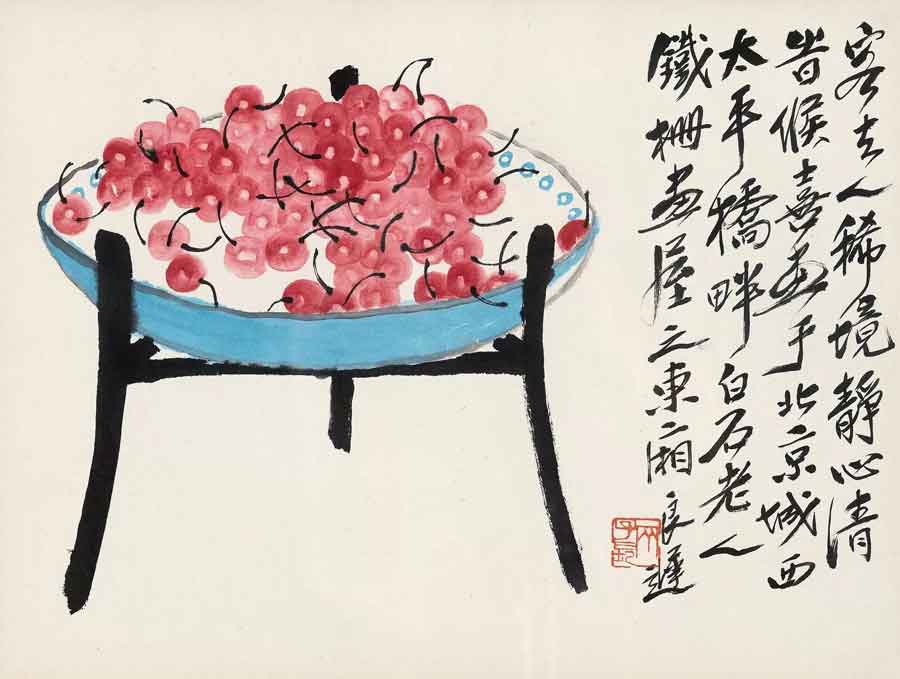 客去人稀境靜心清
旹候喜畫于北京城西
太平橋畔白石老人
鐵柵畫屋之東廂良遲